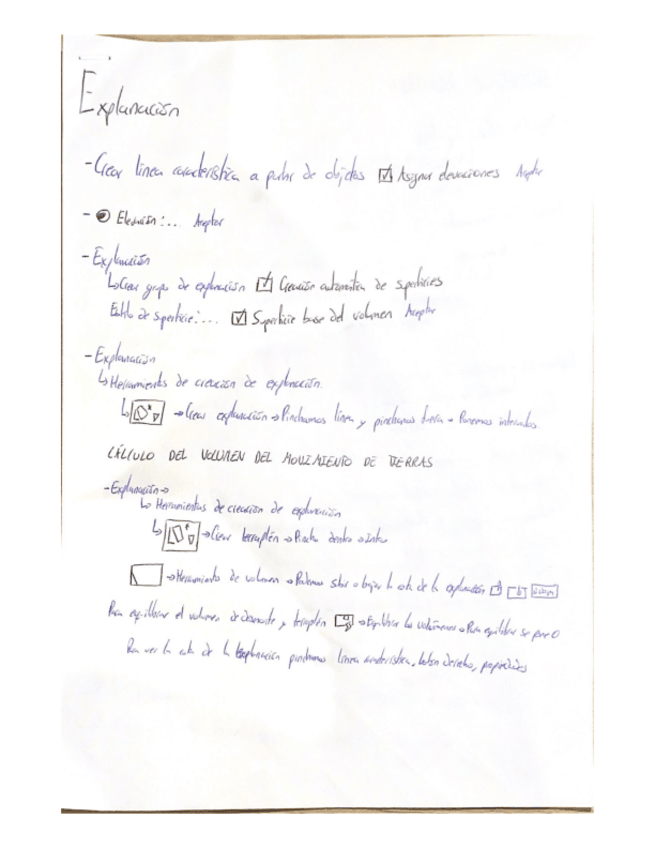 Explanación
- Crear línea característica a partir de objetos ☑ Asignar elevaciones Aceptar
- ◉ Elevación: ... Aceptar
- Explanación
↳ Crear grupo de explanación ☑ Creación automática de superficies
Estilo de superficie: ... ☑ Superficie base del volumen Aceptar
- Explanación
↳ Herramientas de creación de explanación
↳ → Crear explanación → Pinchamos línea y pinchamos fuera → Ponemos intervalos
CÁLCULO DEL VOLUMEN DEL MOVIMIENTO DE TIERRAS
- Explanación →
↳ Herramientas de creación de explanación
↳ → Crear terraplén → Pincho dentro → Intro
→ Herramienta de volumen → Podemos subir o bajar la cota de la explanación
Para equilibrar el volumen de desmonte y terraplén → Equilibrar los volúmenes → Para equilibrar se pone 0
Para ver la cota de la Explanación pinchamos línea característica, botón derecho, propiedades